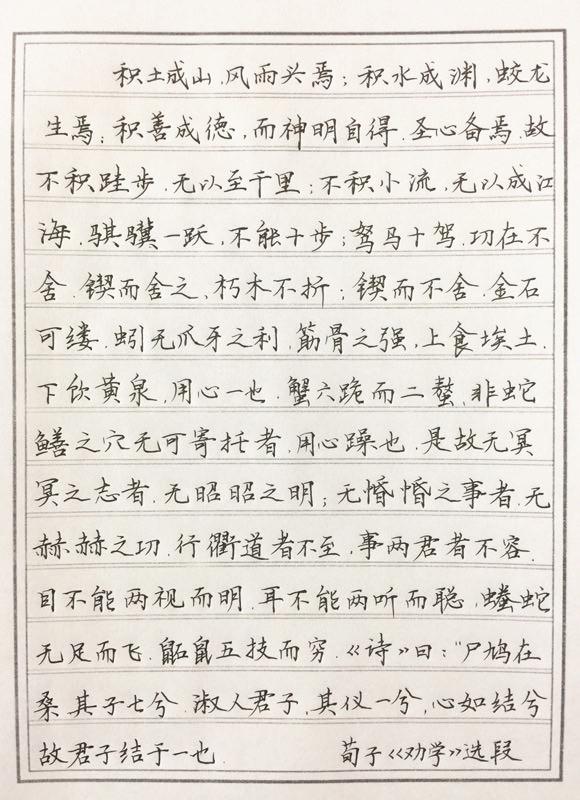 积土成山,风雨头焉;积水成渊,蛟龙
生焉;积善成德,而神明自得.圣心备焉.故
不积跬步.无以至千里;不积小流,无以成江
海.骐骥一跃,不能十步;驽马十驾.功在不
舍.锲而舍之,朽木不折;锲而不舍.金石
可镂.蚓无爪牙之利,筋骨之强,上食埃土.
下饮黄泉,用心一也.蟹六跪而二螯,非蛇
鳝之穴无可寄托者.用心躁也.是故无冥
冥之志者.无昭昭之明;无惛惛之事者.无
赫赫之功.行衢道者不至,事两君者不容.
目不能两视而明.耳不能两听而聪,螣蛇
无足而飞.鼫鼠五技而穷.《诗》曰:“尸鸠在
桑.其子七兮.淑人君子,其仪一兮,心如结兮
故君子结于一也.  荀子《劝学》选段